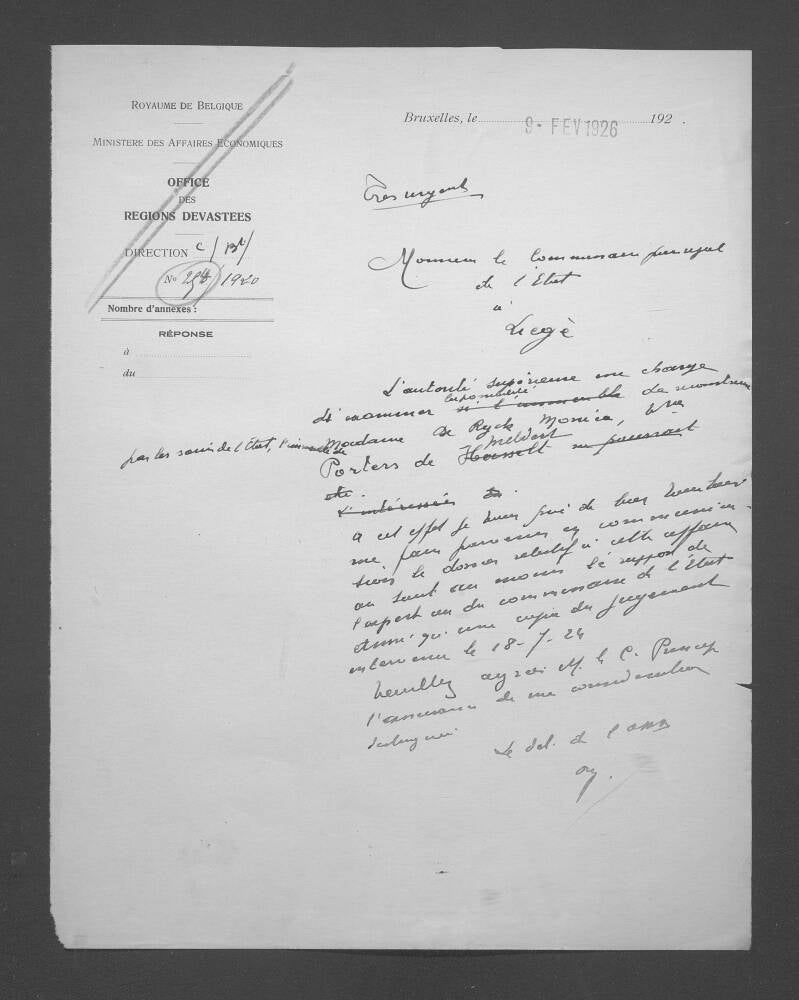 ROYAUME DE BELGIQUE
MINISTERE DES AFFAIRES ECONOMIQUES
OFFICE
DES
REGIONS DEVASTEES
DIRECTION C/
No /1920
Nombre d'annexes :
RÉPONSE
à
du
Bruxelles, le 9 - FEV 1926 192 .
Très urgent
Monsieur le Commissaire principal
de l'Etat
à
Liège
L'autorité supérieure me charge
d'examiner si l'immeuble de
par les soins de l'Etat, l'immeuble de
Madame De Ryck Monica, Vve
Porters de Hasselt ne pourrait
Meldert
être.
L'intéressée
A cet effet je vous prie de bien vouloir
me faire parvenir en communica-
tion le dossier relatif à cette affaire
ou tout au moins le rapport de
l'expert ou du commissaire de l'Etat
ainsi qu'une copie du jugement
intervenu le 18-7-24
Veuillez agréer M. le C. Princip
l'assurance de ma considération
distinguée.
Le del. de